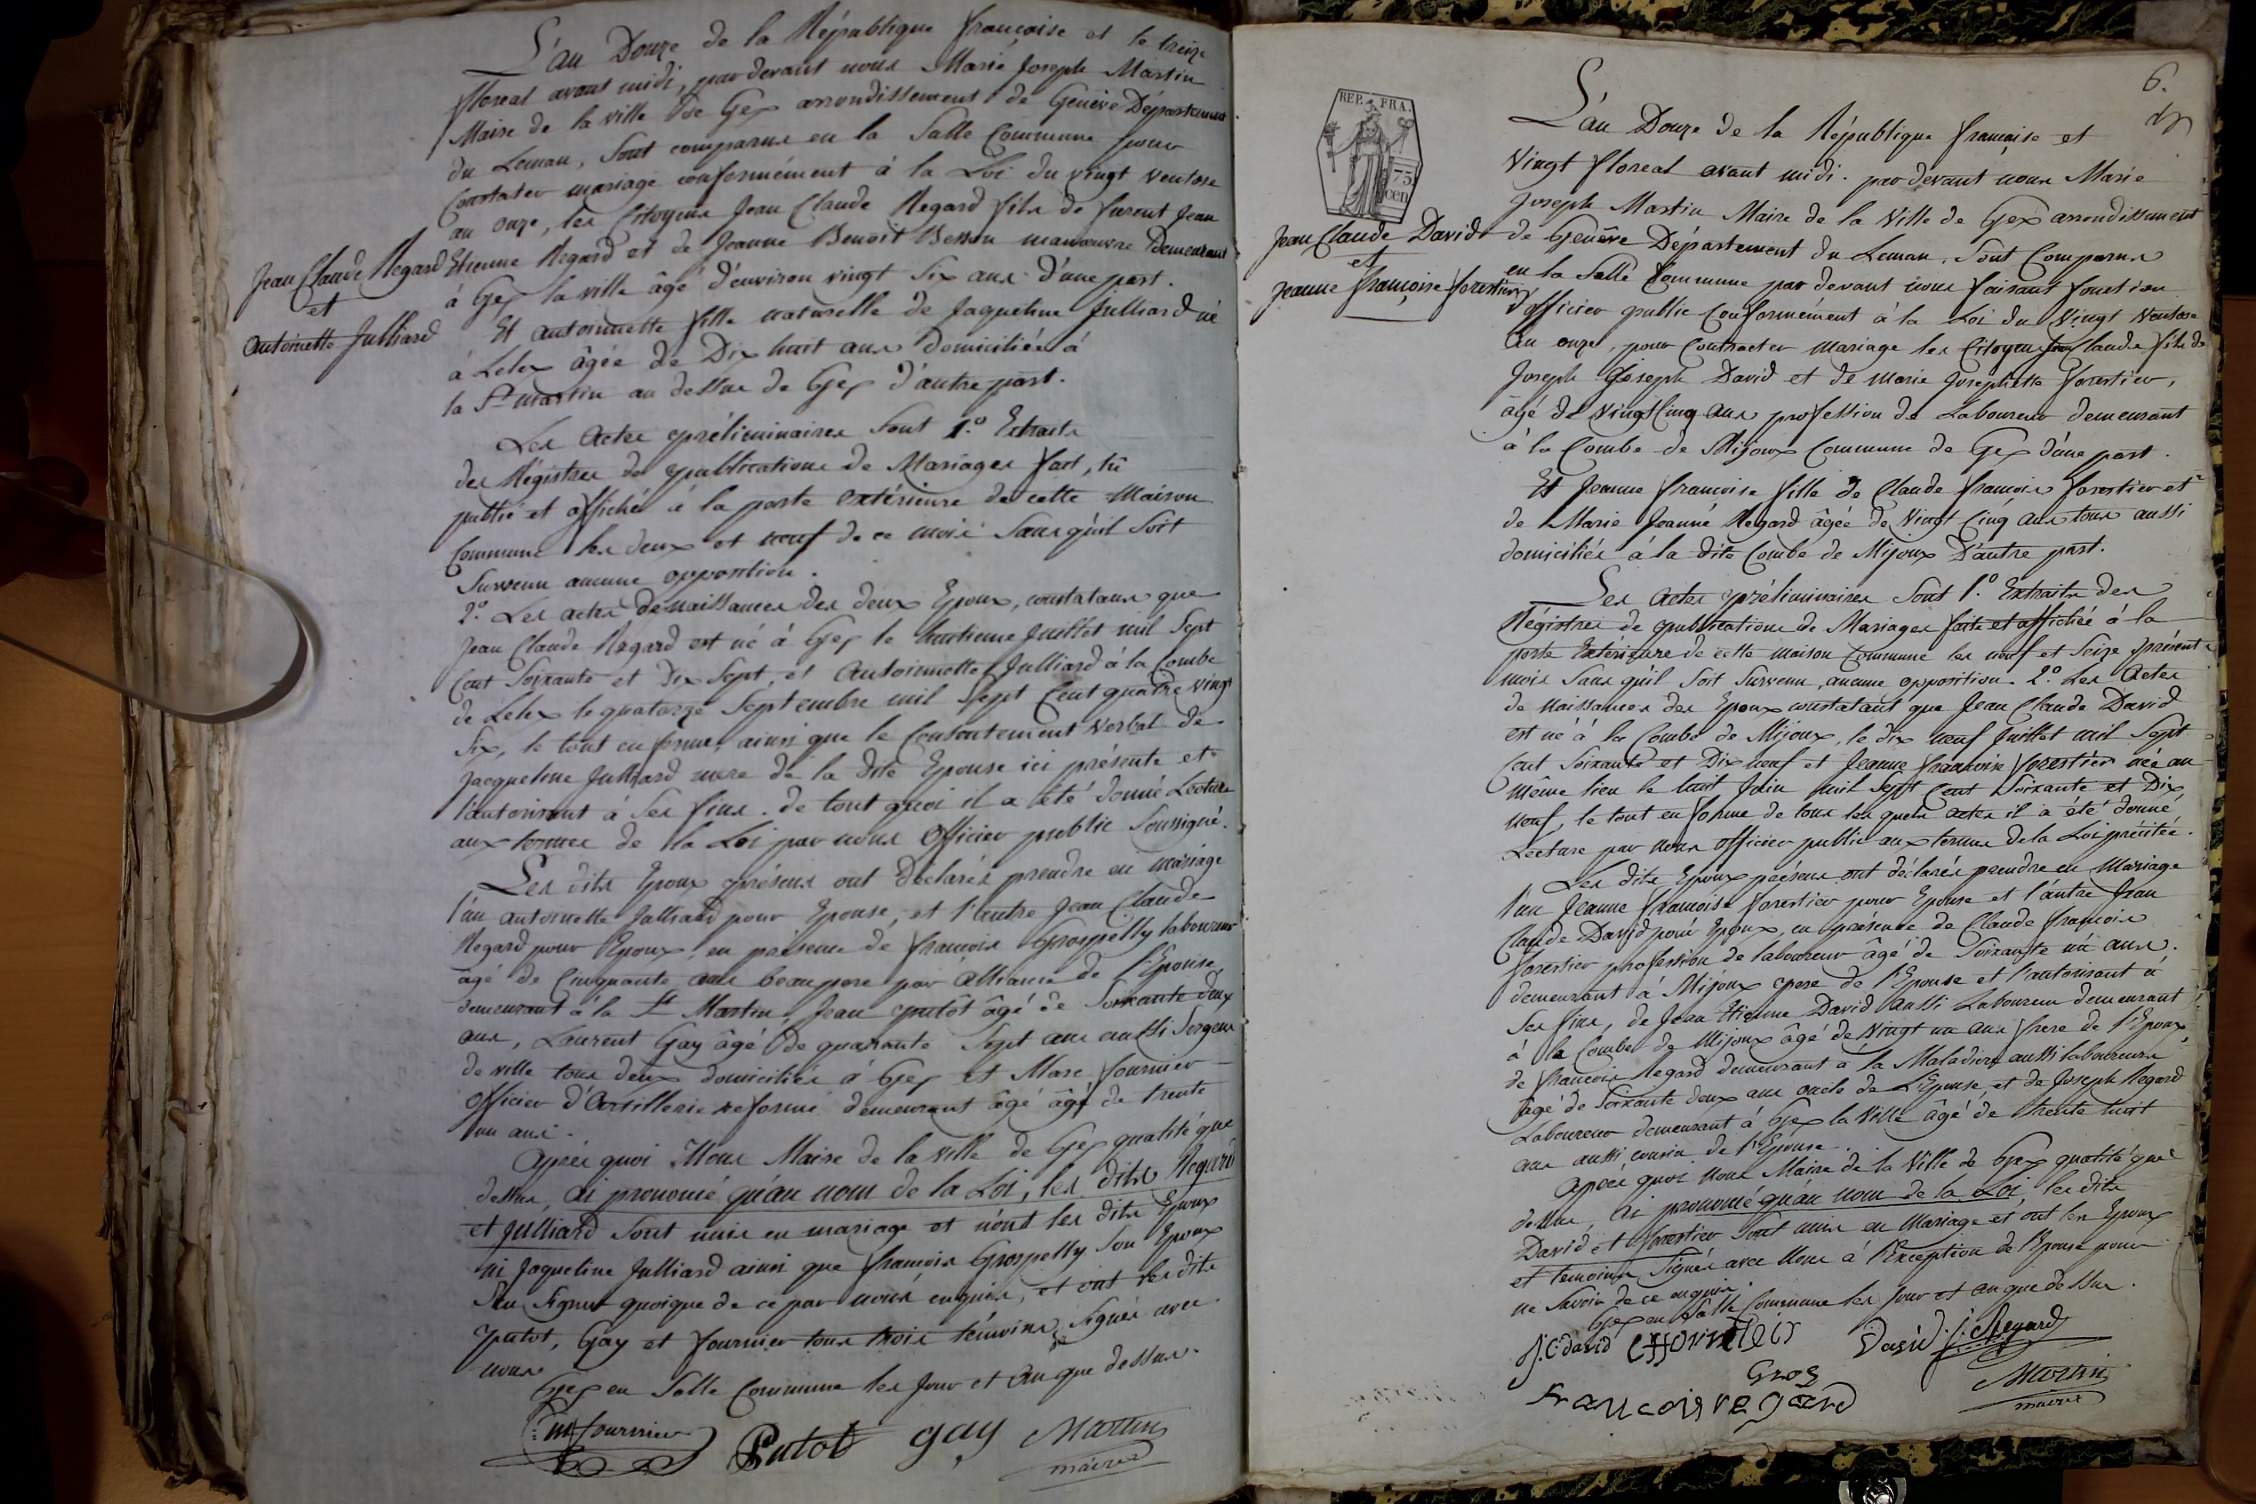 L'an Douze de la République françoise et le treize
floreal avant midi, par devant nous Marie Joseph Martin
Maire de la ville de Gex arrondissement de Genève Département
du Leman, sont comparus en la Salle Commune pour
Contracter mariage conformément à la Loi du vingt ventose
an onze, les Citoyens Jean Claude Regard fils de furent Jean
Jean Claude Regard
et
Antoinette Julliard
Etienne Regard et de Jeanne Benoit Besson manoeuvre demeurant
à Gex la ville âgé d'environ vingt six ans d'une part.
Et antoinette fille naturelle de Jaqueline Julliard né
à Lelex âgée de Dix huit ans domiciliée à
la St martin au dessus de Gex d'autre part.
Les Actes préliminaires sont 1.° Extraits
des Régistres de publications de Mariages fait, lû
publié et affiché à la porte extérieure de cette Maison
Commune les deux et neuf de ce mois sans qu'il soit
survenu aucune opposition.
2.° Les actes de naissances des deux Epoux, constatans que
Jean Claude Regard est né à Gex le huitieme Juillet mil sept
Cent Soixante et Dix Sept, et Antoinette Julliard à la Combe
de Lelex le quatorze Septembre mil sept Cent quatre vingt
Six, le tout en forme, ainsi que le Consentement verbal de
Jacqueline Julliard mere de la dite Epouse ici présente et
l'autorisant à Ses fins. de tout quoi il a été donné Lecture
aux termes de la Loi par nous Officier public Soussigné.
Les dits Epoux présens ont déclarés prendre en mariage
l'un antoinette Julliard pour Epouse, et l'autre Jean Claude
Regard pour Epoux, en présence de françois Grospelly laboureur
âgé de Cinquante ans beaupere par alliance de l'Epouse
demeurant à la St Martin, Jean putôt âgé de Soixante deux
ans, Laurent Gay âgé de quarante Sept ans aussi Sergent
de ville tous deux domiciliés à Gex et Marc fournier
Officier d'Artillerie reformé demeurant âgé âgé de trente
un ans.
Après quoi Nous Maire de la ville de Gex qualité que
dessus, ai prononcé qu'au nom de la Loi, les dits Regard
et Julliard sont unis en mariage et n'ont les dits Epoux
ni Jaqueline Julliard ainsi que françois Grospelly son Epoux
Su signer quoique de ce par nous enquis, et ont les dits
putot, Gay et fournier tous trois témoins signés avec
nous
Gex en Salle Commune les Jour et an que dessus.
m fournier Putot gay Martin
maire
6.
REP. FRA.
75
cen
L'an Douze de la République françoise et
Vingt floreal avant midi. par devant nous Marie
Joseph Martin Maire de la Ville de Gex arrondissement
Jean Claude David
et
Jeanne françoise forestier
de Genêve Département du Leman, sont Comparus
en la Salle Commune par devant nous faisant fonction
d'officier public Conformément à la Loi du Vingt Ventose
an onze, pour Contracter mariage les Citoyens Jean Claude fils de
Joseph Joseph David et de marie Josephette forestier,
âgé de vingt Cinq ans profession de Laboureur demeurant
à la Combe de Mijoux Commune de Gex d'une part.
Et Jeanne françoise fille de Claude françois forestier et
de Marie Jeanne Regard âgée de Vingt Cinq ans tous aussi
domiciliés à la dite Combe de Mijoux D'autre part.
Les Actes préliminaires sont 1.° Extraits des
Régistres de publications de Mariages faits et affichés à la
porte Extérieure de cette maison Commune les neuf et Seize présent
mois sans qu'il soit Survenu aucune opposition. 2.° Les Actes
de Naissances des Epoux constatant que Jean Claude David
est né à la Combe de Mijoux, le dix neuf Juillet mil Sept
Cent Soixante et Dix neuf et Jeanne françoise forestier née au
même lieu le huit Juin mil Sept Cent Soixante et Dix
neuf, le tout en forme de tous les quels actes il a été donné
Lecture par nous officier public aux termes de la Loi précitée.
Les dits Epoux présens ont déclarés prendre en Mariage
l'un Jeanne françoise forestier pour Epouse et l'autre Jean
Claude David pour Epoux, en présence de Claude françois
forestier profession de laboureur âgé de Soixante un ans.
demeurant à Mijoux pere de l'Epouse et l'autorisant à
Ses fins, de Jean Etienne David aussi Laboureur demeurant
à la Combe de Mijoux âgé de vingt un ans frere de l'Epoux,
de françois Regard demeurant à la Maladiere aussi laboureur
âgé de Soixante deux ans oncle de L'Epouse et de Joseph Regard
Laboureur demeurant à Gex la Ville âgé de trente huit
ans aussi cousin de l'Epouse.
Après quoi nous Maire de la Ville de Gex qualité que
dessus, ai prononcé qu'au nom de la Loi, les dits
David et forestier sont unis en Mariage et ont les Epoux
et temoins Signés avec Nous à l'Exception de l'Epouse pour
ne savoir de ce enquise
Gex en Salle Commune les Jour et an que dessus.
J. C. david David J. Regard
Gros
francois regard Martin
maire